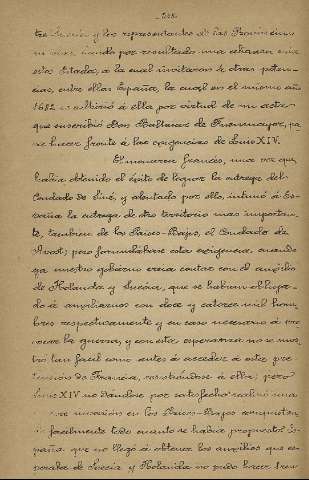 -238-
tre Suecia y los representantes de las Provincias
dando por resultado una alianza entre
estos Estados, á la cual invitaron á otras poten-
cias, entre ellas España, la cual en el mismo año
1682 se adhirió á ella por virtud de un acta
que suscribió Don Baltasar de Fuenmayor, pa-
ra hacer frente á las exigencias de Luis XIV.
El monarca francés, una vez que
había obtenido el éxito de lograr la entrega del
Condado de Chiny, y alentado por ello, intimó á Es-
paña la entrega de otro territorio mas importan-
te, tambien de los Países-Bajos, el Condado de
Alost; pero formulábase esta exigencia cuando
ya nuestro gobierno creia contar con el auxilio
de Holanda y Suecia, que se habian obliga-
do á auxiliarnos con doce y catorce mil hom-
bres respectivamente y en caso necesario á de-
clarar la guerra, y con esta esperanza no se mos-
tró tan facil como antes á acceder á esta pre-
tension de Francia, resistiéndose á ella; pero
Luis XIV no dándose por satisfecho realizó una
invasión en los Países-Bajos conquistan-
do facilmente todo cuanto se habia propuesto. Es-
paña que no llegó á obtener los auxilios que es-
peraba de Suecia y Holanda no pudo hacer fren